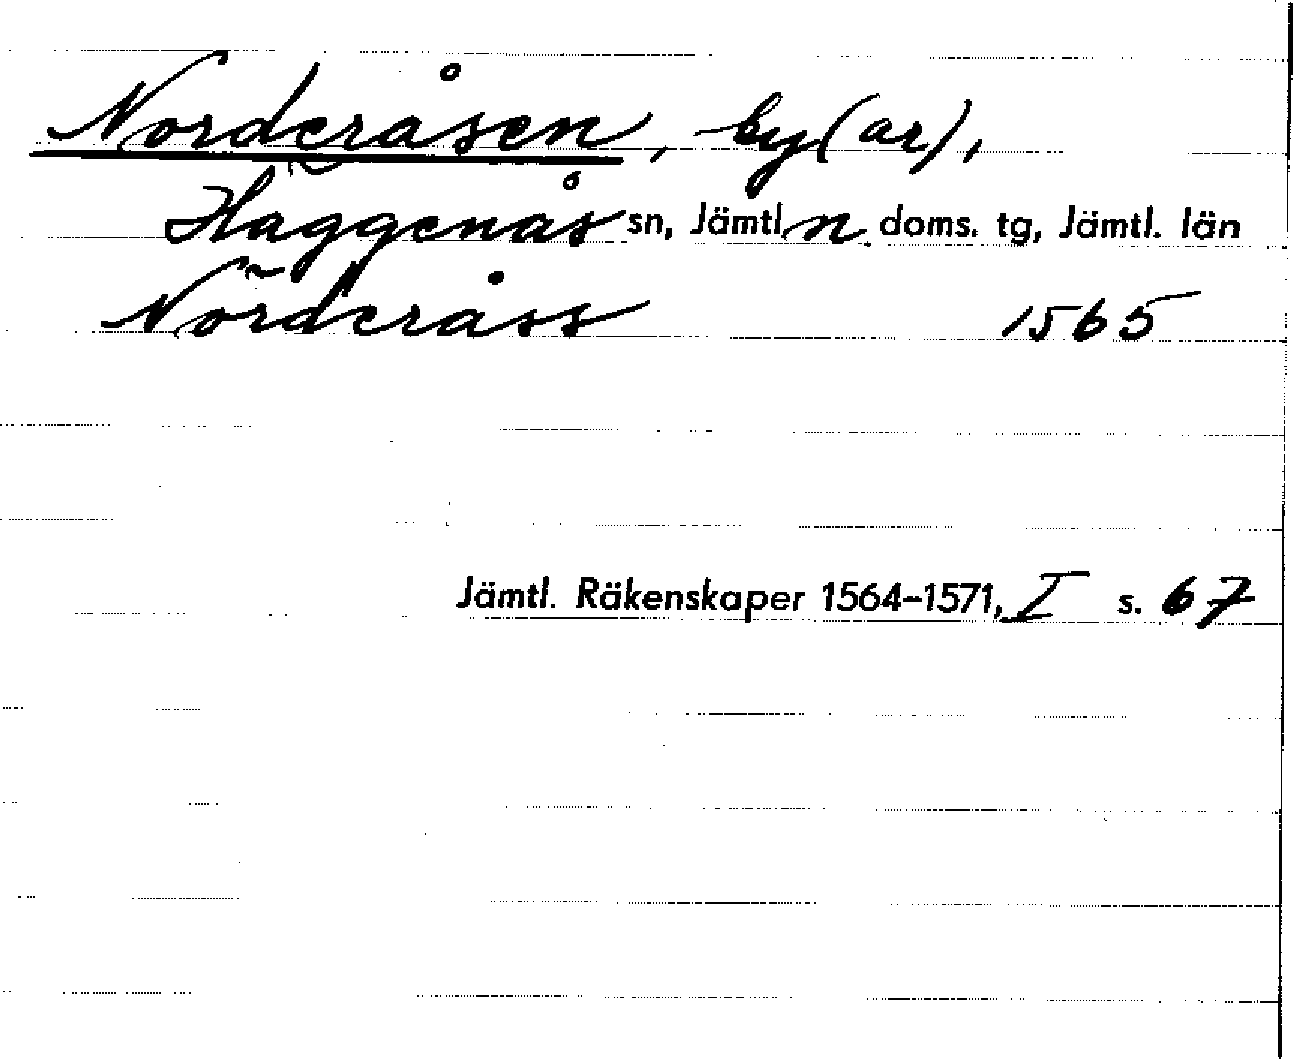 Norderåsen, by(ar),
Häggenås sn, Jämtl. n. doms. tg, Jämtl. län
Nörderåss 1565
Jämtl. Räkenskaper 1564-1571, I s. 67